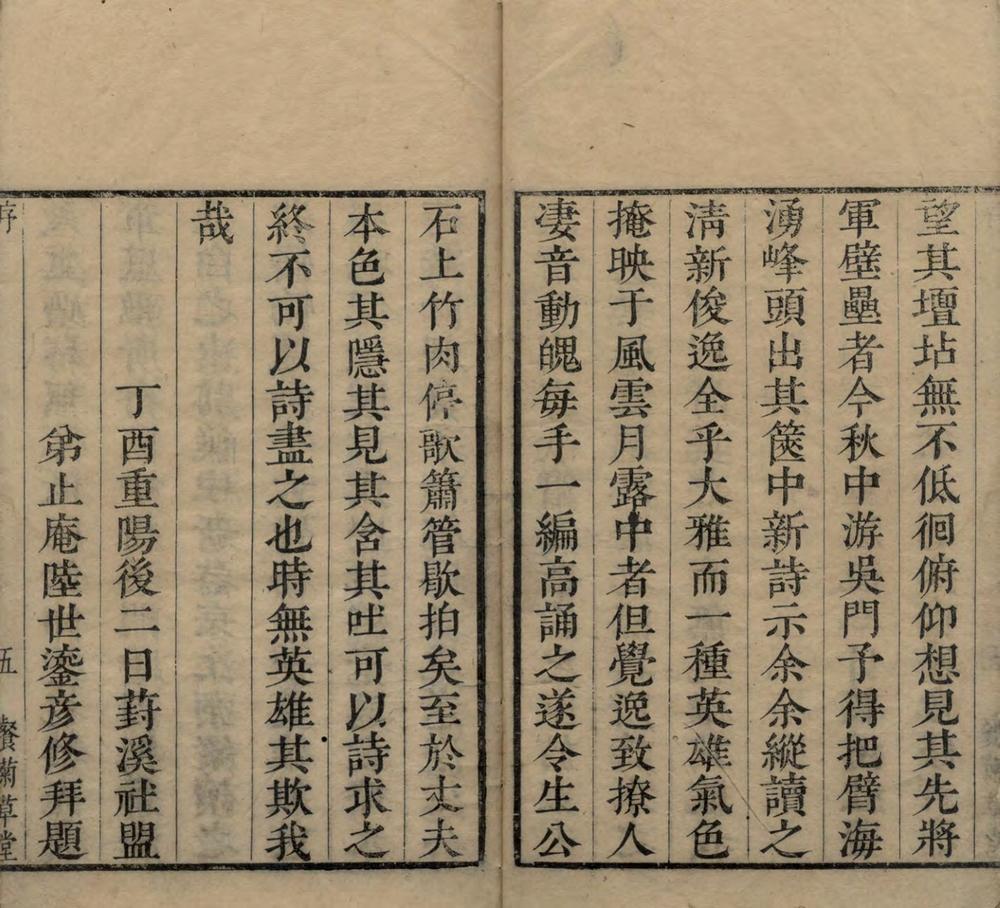 望其壇坫無不低徊俯仰想見其先將
軍壁壘者今秋中游吳門予得把臂海
湧峰頭出其篋中新詩示余余縱讀之
清新俊逸全乎大雅而一種英雄氣色
掩映于風雲月露中者但覺逸致撩人
凄音動魄每手一編高誦之遂令生公
石上竹肉停歌簫管歇拍矣至於丈夫
本色其隱其見其含其吐可以詩求之
終不可以詩盡之也時無英雄其欺我
哉
丁酉重陽後二日葑溪社盟
弟止庵陸世鎏彦修拜題
序 五 餐菊草堂